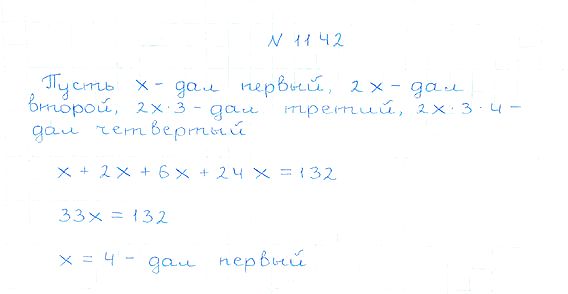 N 1142
Пусть x - дал первый, 2x - дал
второй, 2x·3 - дал третий, 2x·3·4 -
дал четвертый
x + 2x + 6x + 24x = 132
33x = 132
x = 4 - дал первый